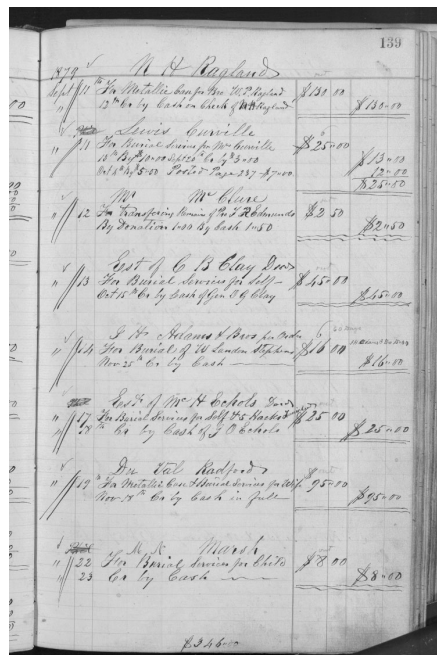 139
1879 N H Ragland
Sept 11 th For Metallic Case for Mrs. W. P. Ragland $130.00
" 12th Cr by Cash on Check of N H Ragland $130.00
Lewis Curville
" 11 For Burial Services for Mrs Curville $25.00
15th By $10.00 Sept 26th Cr by $3.00 $13.00
Oct 8th By $5.00 Posted Page 237 - $7.00 12.00
$25.00
Mr McClure
" 12 For Transferring Remains of Edmunds $2.50
By Donation 1.00 By Cash 1.50 $2.50
Est of C B Clay Decd
" 13 For Burial Services for Self - $45.00
Oct 15th Cr by Cash of Gen O G Clay $45.00
J H Adams & Bros per Order
" 14 For Burial of W Landon Stephens $16.00
Nov 25th Cr by Cash $16.00
Est of Mr H Echols Decd
" 17 For Burial Services for Self & 5 Hacks $25.00
" 18th Cr by Cash of J O Echols $25.00
Dr Val Radford
" 19 For Metallic Case & Burial Services for Wife $95.00
Nov 18th Cr by Cash in full $95.00
M N Marsh
" 22 For Burial Services for Child $8.00
" 23 Cr by Cash $8.00
$346.00